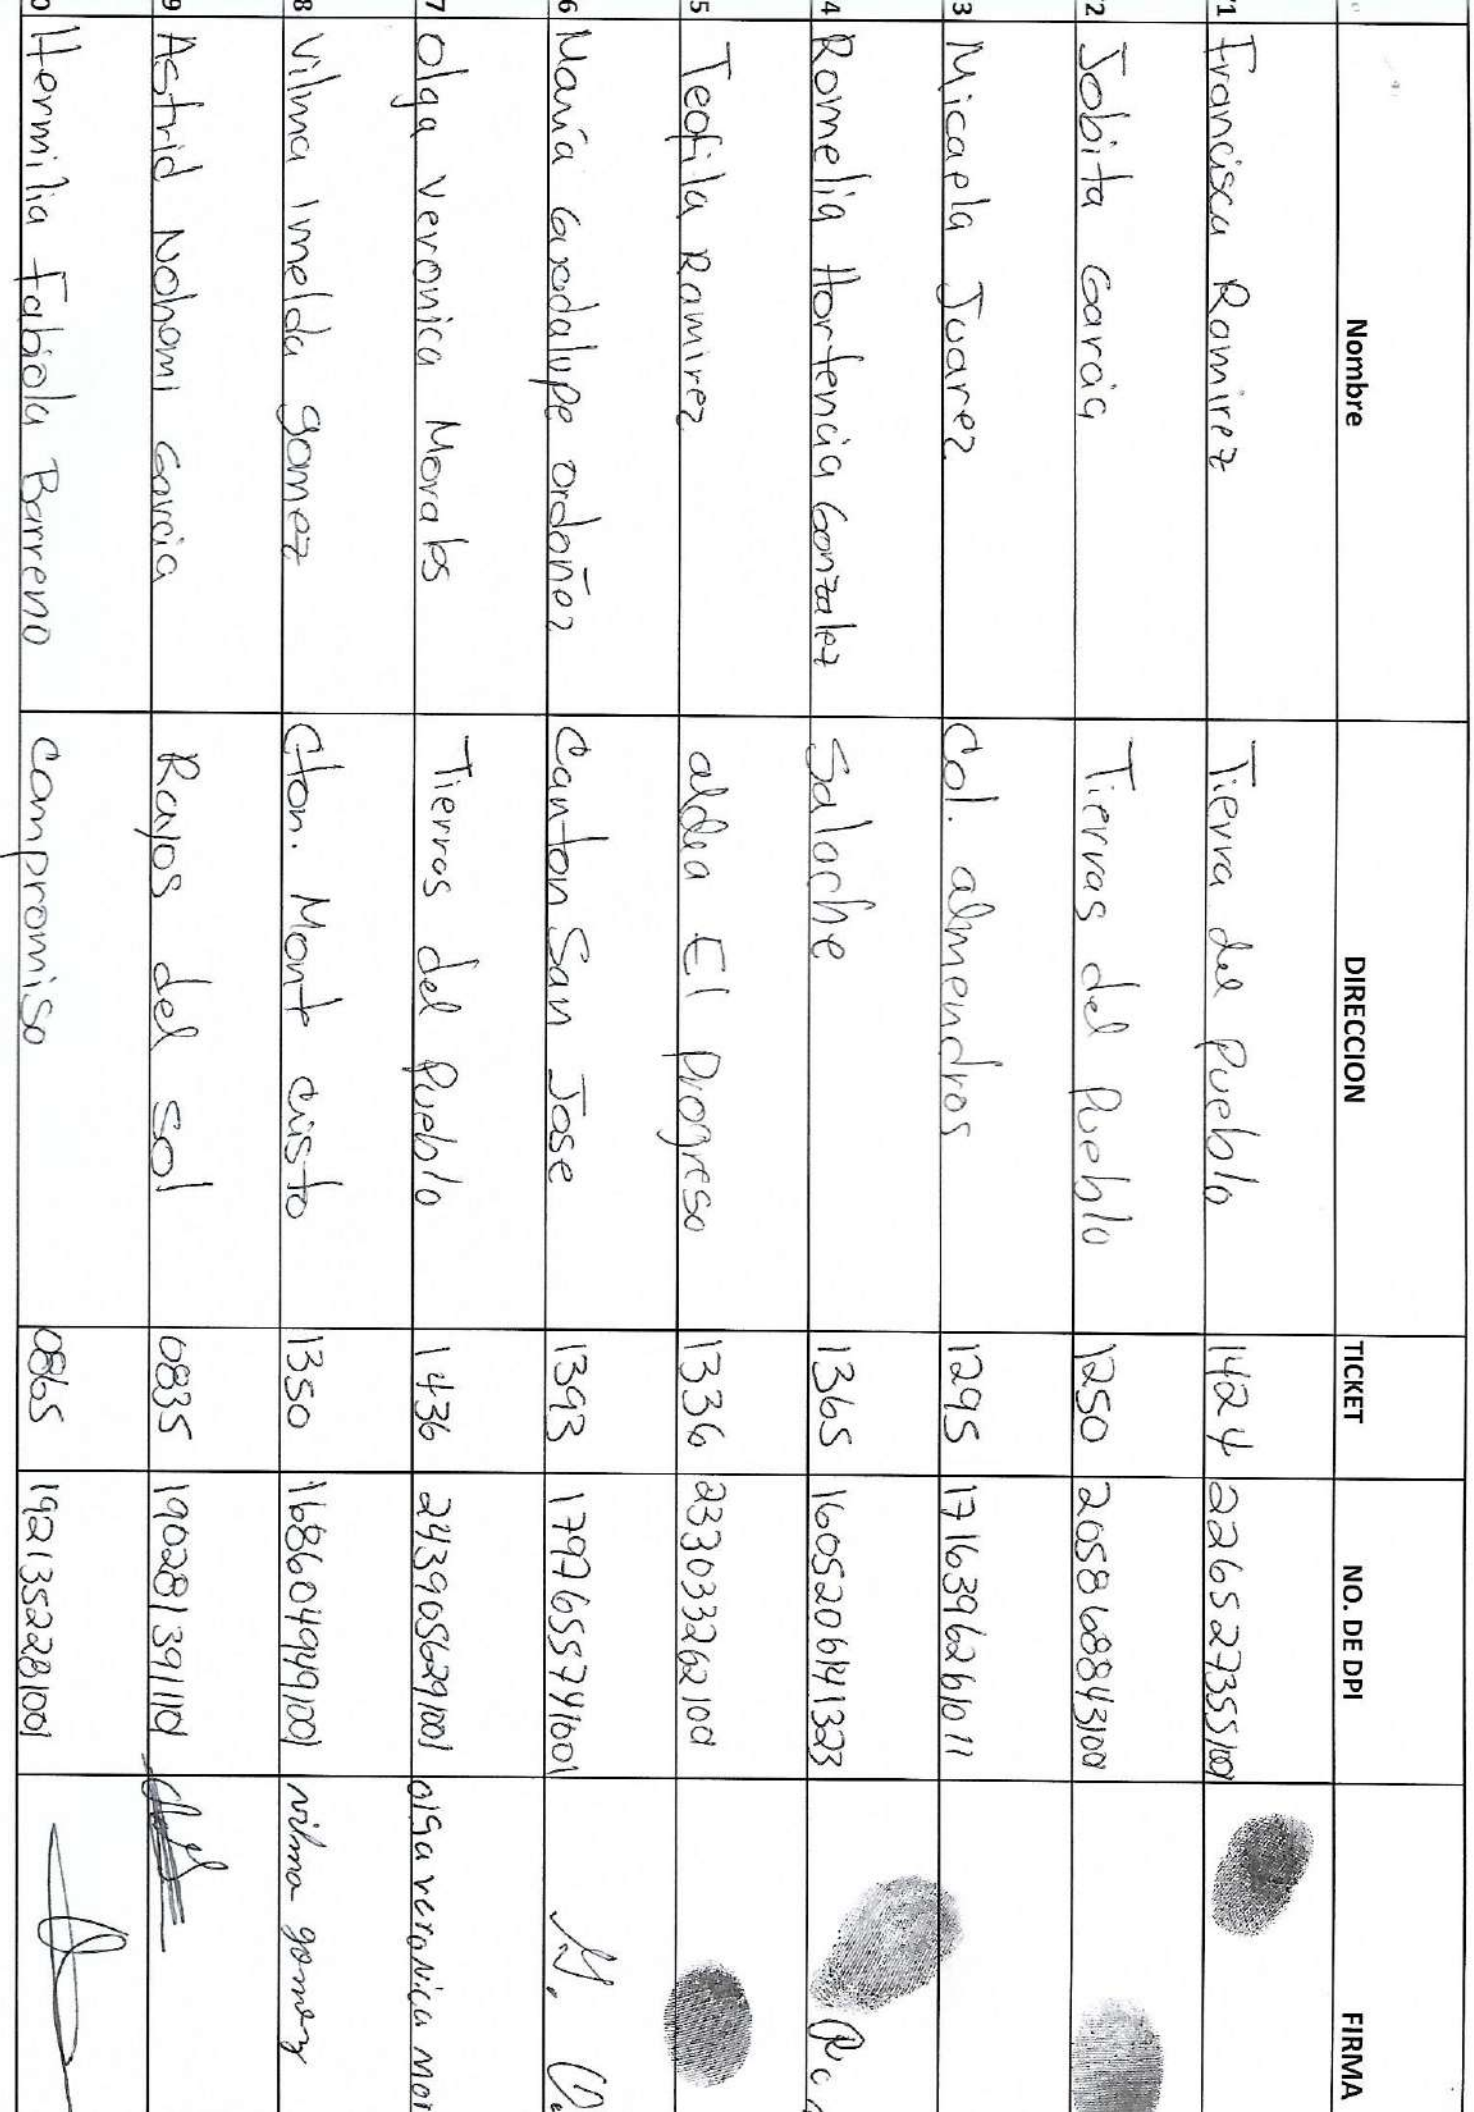 Nombre DIRECCION TICKET NO. DE DPI FIRMA
1 Francisca Ramirez Tierra del Pueblo 1424 2265273551001
2 Jobita Garcia Tierras del Pueblo 1250 2058688431001
3 Micaela Juarez Col. almendros 1295 1716396261011
4 Romelia Hortencia Gonzalez Salache 1365 1605206141323
5 Teofila Ramirez aldea El Progreso 1336 2330332621001
6 María Guadalupe Ordoñez Canton San Jose 1393 1797655741001
7 Olga Veronica Morales Tierras del Pueblo 1436 2439056291001 olga veronica mor
8 Vilma Imelda gomez Cton. Monte cristo 1350 1686049491001 vilma gomez
9 Astrid Nohomi Garcia Rayos del sol 0835 1902813911101
0 Hermilia Fabiola Barreno Compromiso 0865 1921352281001